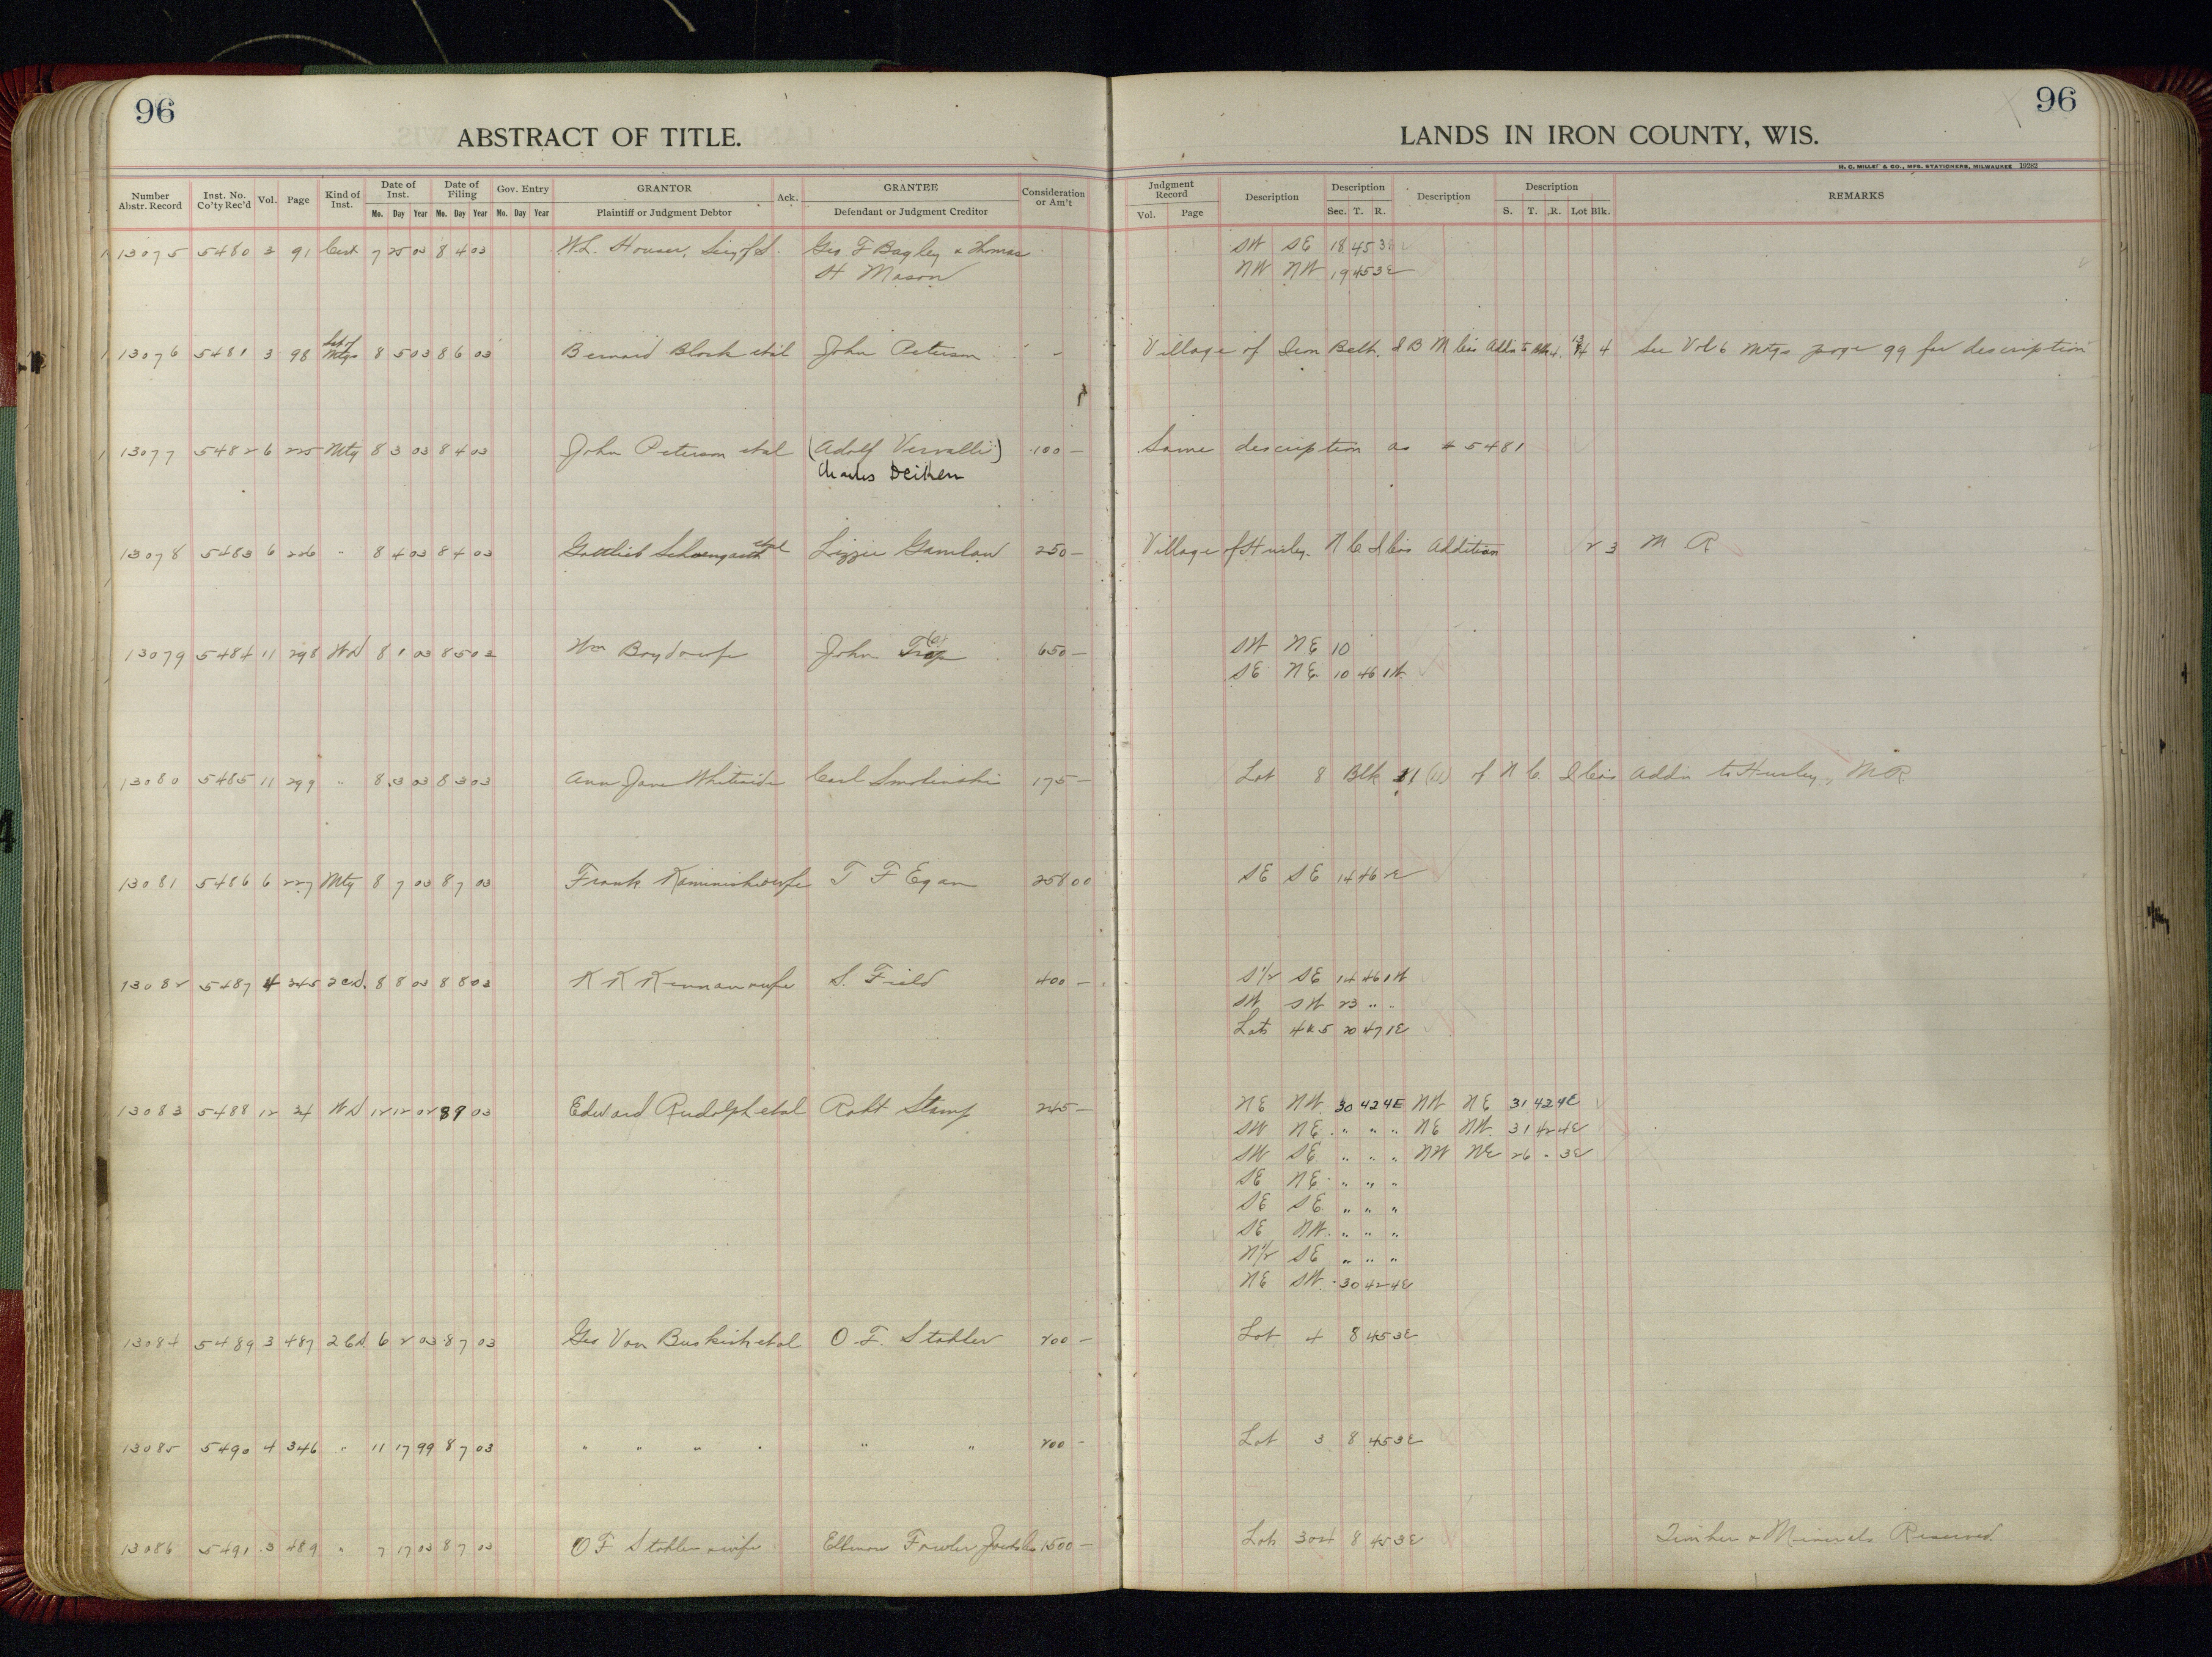 96
ABSTRACT OF TITLE.
LANDS IN IRON COUNTY, WIS.
96
H. C. MILLER & CO., MFG. STATIONERS, MILWAUKEE 19282
Number Abstr. Record Inst. No. Co'ty Rec'd Vol. Page Kind of Inst. Date of Inst. Mo. Day Year Date of Filing Mo. Day Year Gov. Entry Mo. Day Year GRANTOR Plaintiff or Judgment Debtor Ack. GRANTEE Defendant or Judgment Creditor Consideration or Am't Judgment Record Vol. Page Description Description Sec. T. R. Description Description S. T. R. Lot Blk. REMARKS
13075 5480 3 91 Cert 7 25 03 8 4 03 W.L. Houser, Secy of S. Geo F Bagley & Thomas SW SE 18 45 3E
H Mason NW NW 19 45 3E
13076 5481 3 98 Sat of Mtge 8 5 03 8 6 03 Bernard Block etal John Peterson - Village of Iron Belt. I B M Cos Addn 4 See Vol 6 Mtgs page 99 for description
13077 5482 6 225 Mtg 8 3 03 8 4 03 John Peterson etal (Adolf Vervalli) 100 - Same description as # 5481
Charles Deiken
13078 5483 6 226 " 8 4 03 8 4 03 Gottlieb Schoengarth etal Lizzie Gamlow 250 - Village of Hurley. N C I Cos Addition 2 3 M R
13079 5484 11 298 WD 8 1 03 8 5 03 Wm Boyd & wife John 650 - SW NE 10
SE NE 10 46 1W
13080 5485 11 299 " 8 3 03 8 3 03 Ann Jane Whiteside Carl Smolinski 175 - Lot 8 Blk 11 (11) of N C I Co's Addn to Hurley, M R
13081 5486 6 227 Mtg 8 7 03 8 7 03 Frank Kaminski & wife T F Egan 258 00 SE SE 14 46 2E
13082 5487 4 345 2CD. 8 8 03 8 8 03 K K Kennan & wife S. Field 400 - S1/2 SE 14 46 1W
SW SW 23 " "
Lots 4 & 5 20 47 1E
13083 5488 12 24 WD 12 12 02 8 9 03 Edward Rudolph etal Robt Stamp 245 - NE NW 30 42 4E NW NE 31 42 4E
SW NE " " " NE NW 31 42 4E
SW SE " " " NW NE 26 " 3E
SE NE " " "
SE SE " " "
SE NW " " "
N1/2 SE " " "
NE SW 30 42 4E
13084 5489 3 487 2CD 6 2 03 8 7 03 Geo Van Buskirk etal O. F. Stahler 200 - Lot 4 8 45 3E
13085 5490 4 346 " 11 17 99 8 7 03 " " " " " " 200 - Lot 3 8 45 3E
13086 5491 3 489 " 7 17 03 8 7 03 O F Stahler & wife Fowler 1500 - Lots 3 & 4 8 45 3E Timber & Minerals Reserved.